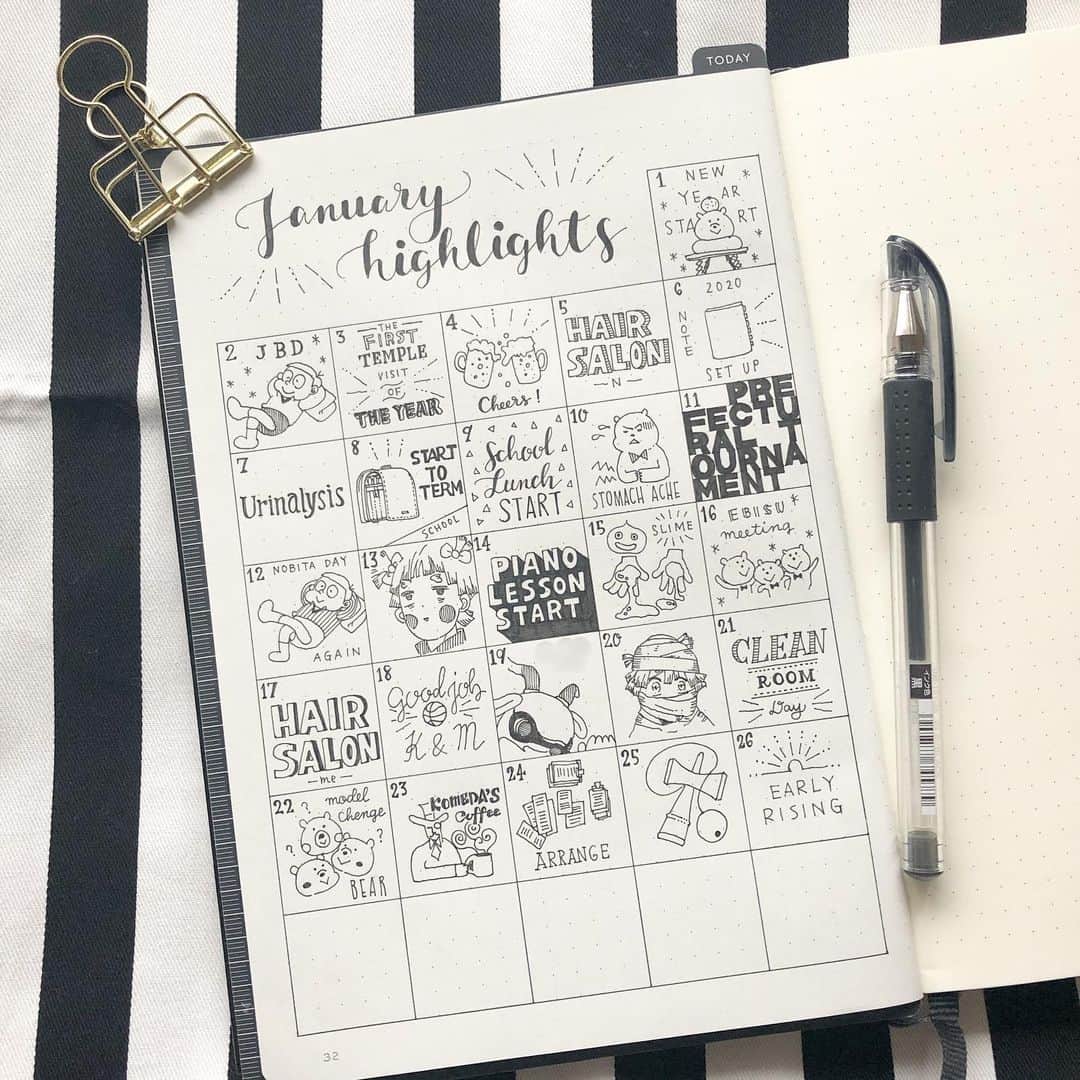 TODAY
January
highlights
1 NEW
YEAR
START
2 JBD
3 THE
FIRST
TEMPLE
VISIT
OF
THE YEAR
4
Cheers!
5
HAIR
SALON
N
6 2020
NOTE
SET UP
7
Urinalysis
8 START
TO
TERM
SCHOOL
9
School
Lunch
START
10
STOMACH ACHE
11
PREFECTU
RAL T
OURNA
MENT
12 NOBITA DAY
AGAIN
13
14
PIANO
LESSON
START
15 SLIME
16 EBISU
meeting
17
HAIR
SALON
me
18
Good job
K & M
19
20
21
CLEAN
ROOM
Day
22 model
chenge
? ? ?
BEAR
23
KOMEDA'S
Coffee
24
ARRANGE
25
26
EARLY
RISING
32
インク色
黒